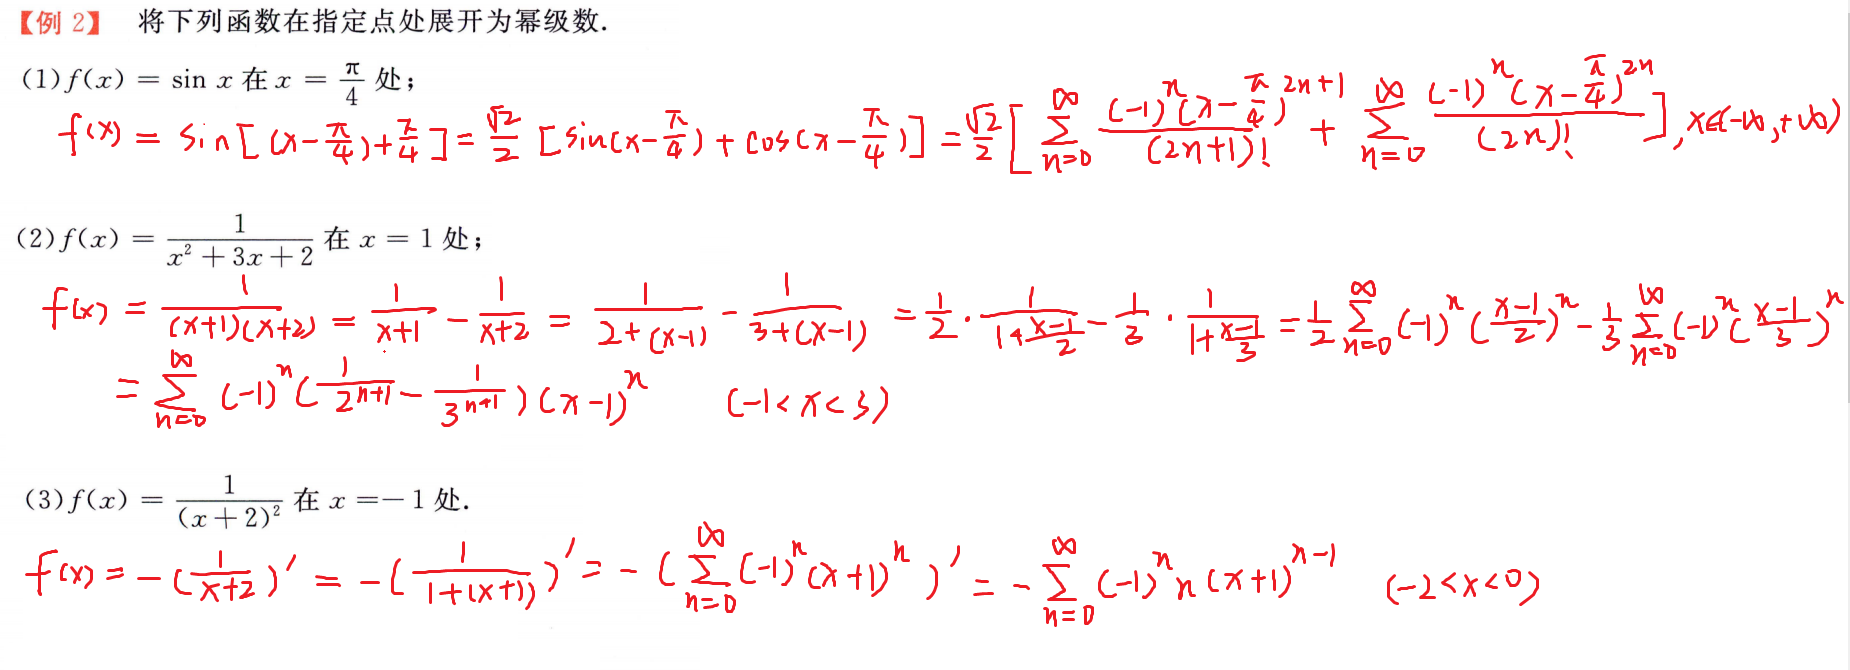 【例 2】 将下列函数在指定点处展开为幂级数.
(1) f(x) = sin x 在 x = π/4 处;
f(x) = sin[(x-π/4)+π/4] = √2/2 [sin(x-π/4) + cos(x-π/4)] = √2/2 [∑_{n=0}^{∞} (-1)^n (x-π/4)^{2n+1}/(2n+1)! + ∑_{n=0}^{∞} (-1)^n (x-π/4)^{2n}/(2n)!], x∈(-∞,+∞)
(2) f(x) = 1/(x²+3x+2) 在 x = 1 处;
f(x) = 1/((x+1)(x+2)) = 1/(x+1) - 1/(x+2) = 1/(2+(x-1)) - 1/(3+(x-1)) = 1/2 · 1/(1+(x-1)/2) - 1/3 · 1/(1+(x-1)/3) = 1/2 ∑_{n=0}^{∞} (-1)^n ((x-1)/2)^n - 1/3 ∑_{n=0}^{∞} (-1)^n ((x-1)/3)^n
= ∑_{n=0}^{∞} (-1)^n (1/2^{n+1} - 1/3^{n+1}) (x-1)^n (-1<x<3)
(3) f(x) = 1/(x+2)² 在 x = -1 处.
f(x) = -(1/(x+2))' = -(1/(1+(x+1)))' = -(∑_{n=0}^{∞} (-1)^n (x+1)^n)' = -∑_{n=0}^{∞} (-1)^n n (x+1)^{n-1} (-2<x<0)